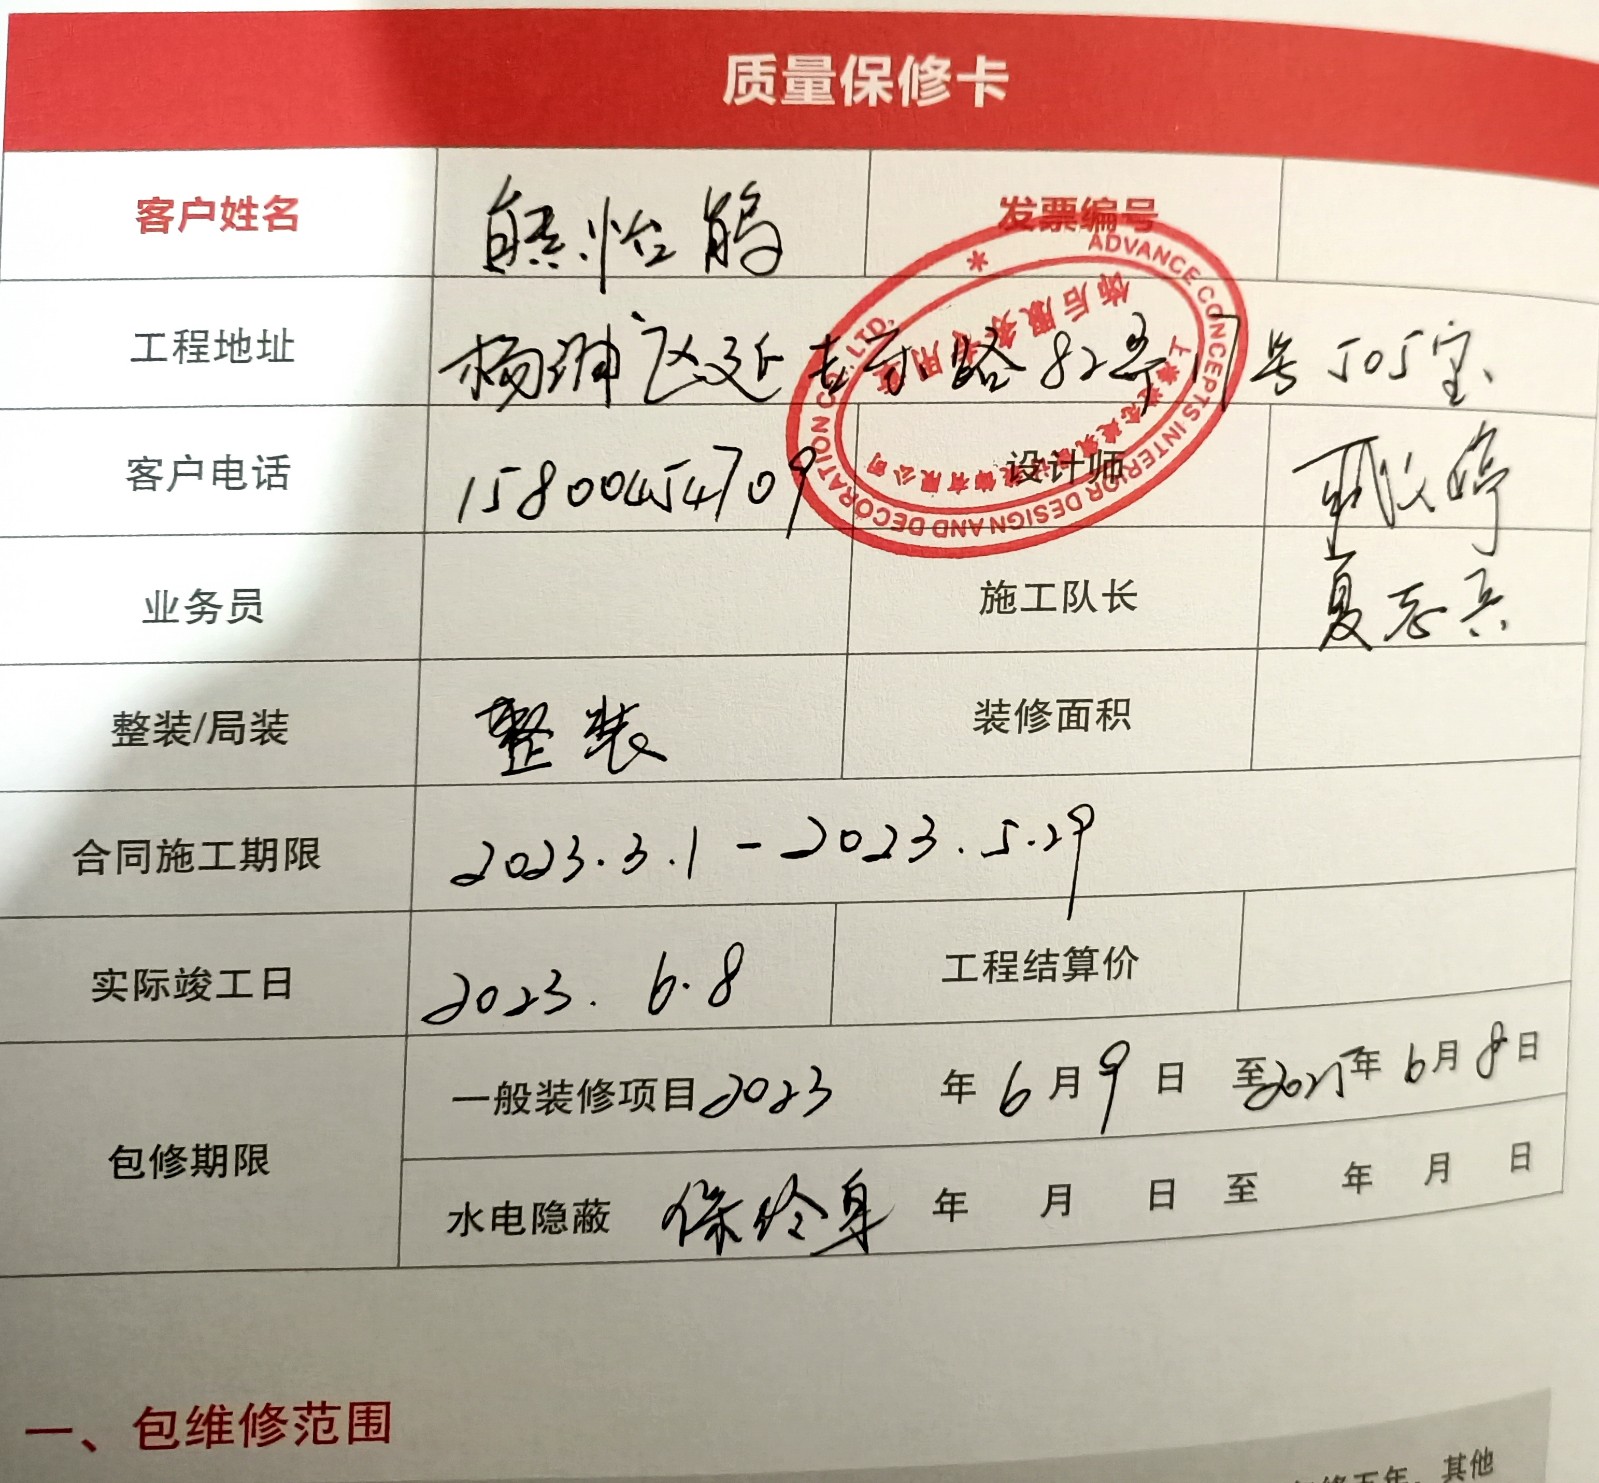 质量保修卡
客户姓名 发票编号
工程地址 杨浦区延吉东路82弄17号505室
客户电话 15800454709 设计师
业务员 施工队长 夏志兵
整装/局装 整装 装修面积
合同施工期限 2023.3.1-2023.5.29
实际竣工日 2023.6.8 工程结算价
包修期限 一般装修项目2023年6月9日至2025年6月8日
水电隐蔽 保终身 年 月 日 至 年 月 日
ADVANCE CONCEPTS INTERIOR DESIGN AND DECORATION CO., LTD.
一、包维修范围
年,其他